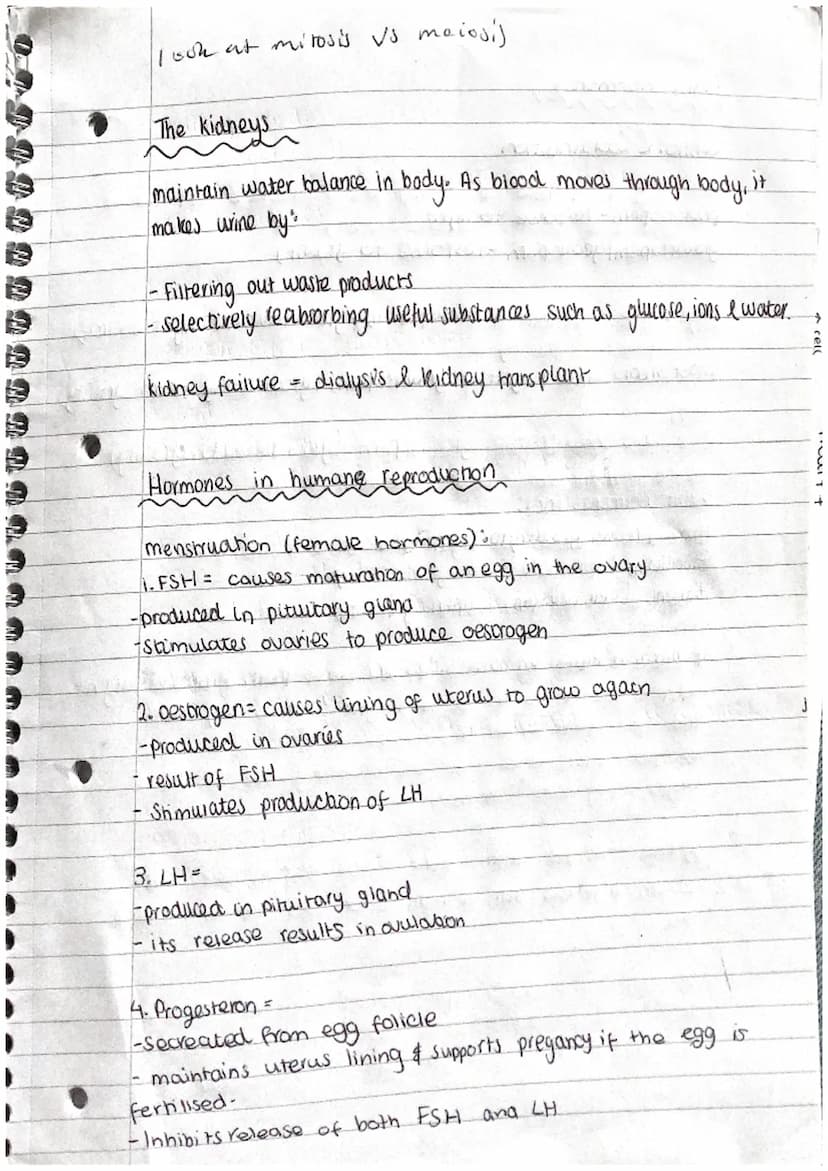 look at mitosis vs meiosis
The kidneys
maintain water balance in body. As blood moves through body, it
makes urine by:
- Filtering out waste products
- selectively reabsorbing useful substances such as glucose, ions & water.
↑ cell
kidney failure = dialysis & kidney transplant
Hormones in humane reproduction
menstruation (female hormones):
1. FSH = causes maturation of an egg in the ovary
- produced in pituitary gland
- stimulates ovaries to produce oestrogen
2. oestrogen = causes lining of uterus to grow again
- produced in ovaries
- result of FSH
- Stimulates production of LH
3. LH =
- produced in pituitary gland
- its release results in ovulation
4. Progesteron =
- secreated from egg folicle
- maintains uterus lining & supports pregancy if the egg is
fertilised.
- Inhibits release of both FSH and LH